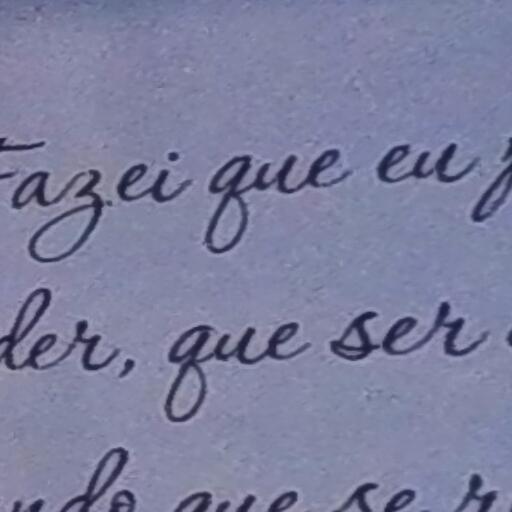 Fazei que eu
der, que ser
ndo que se r